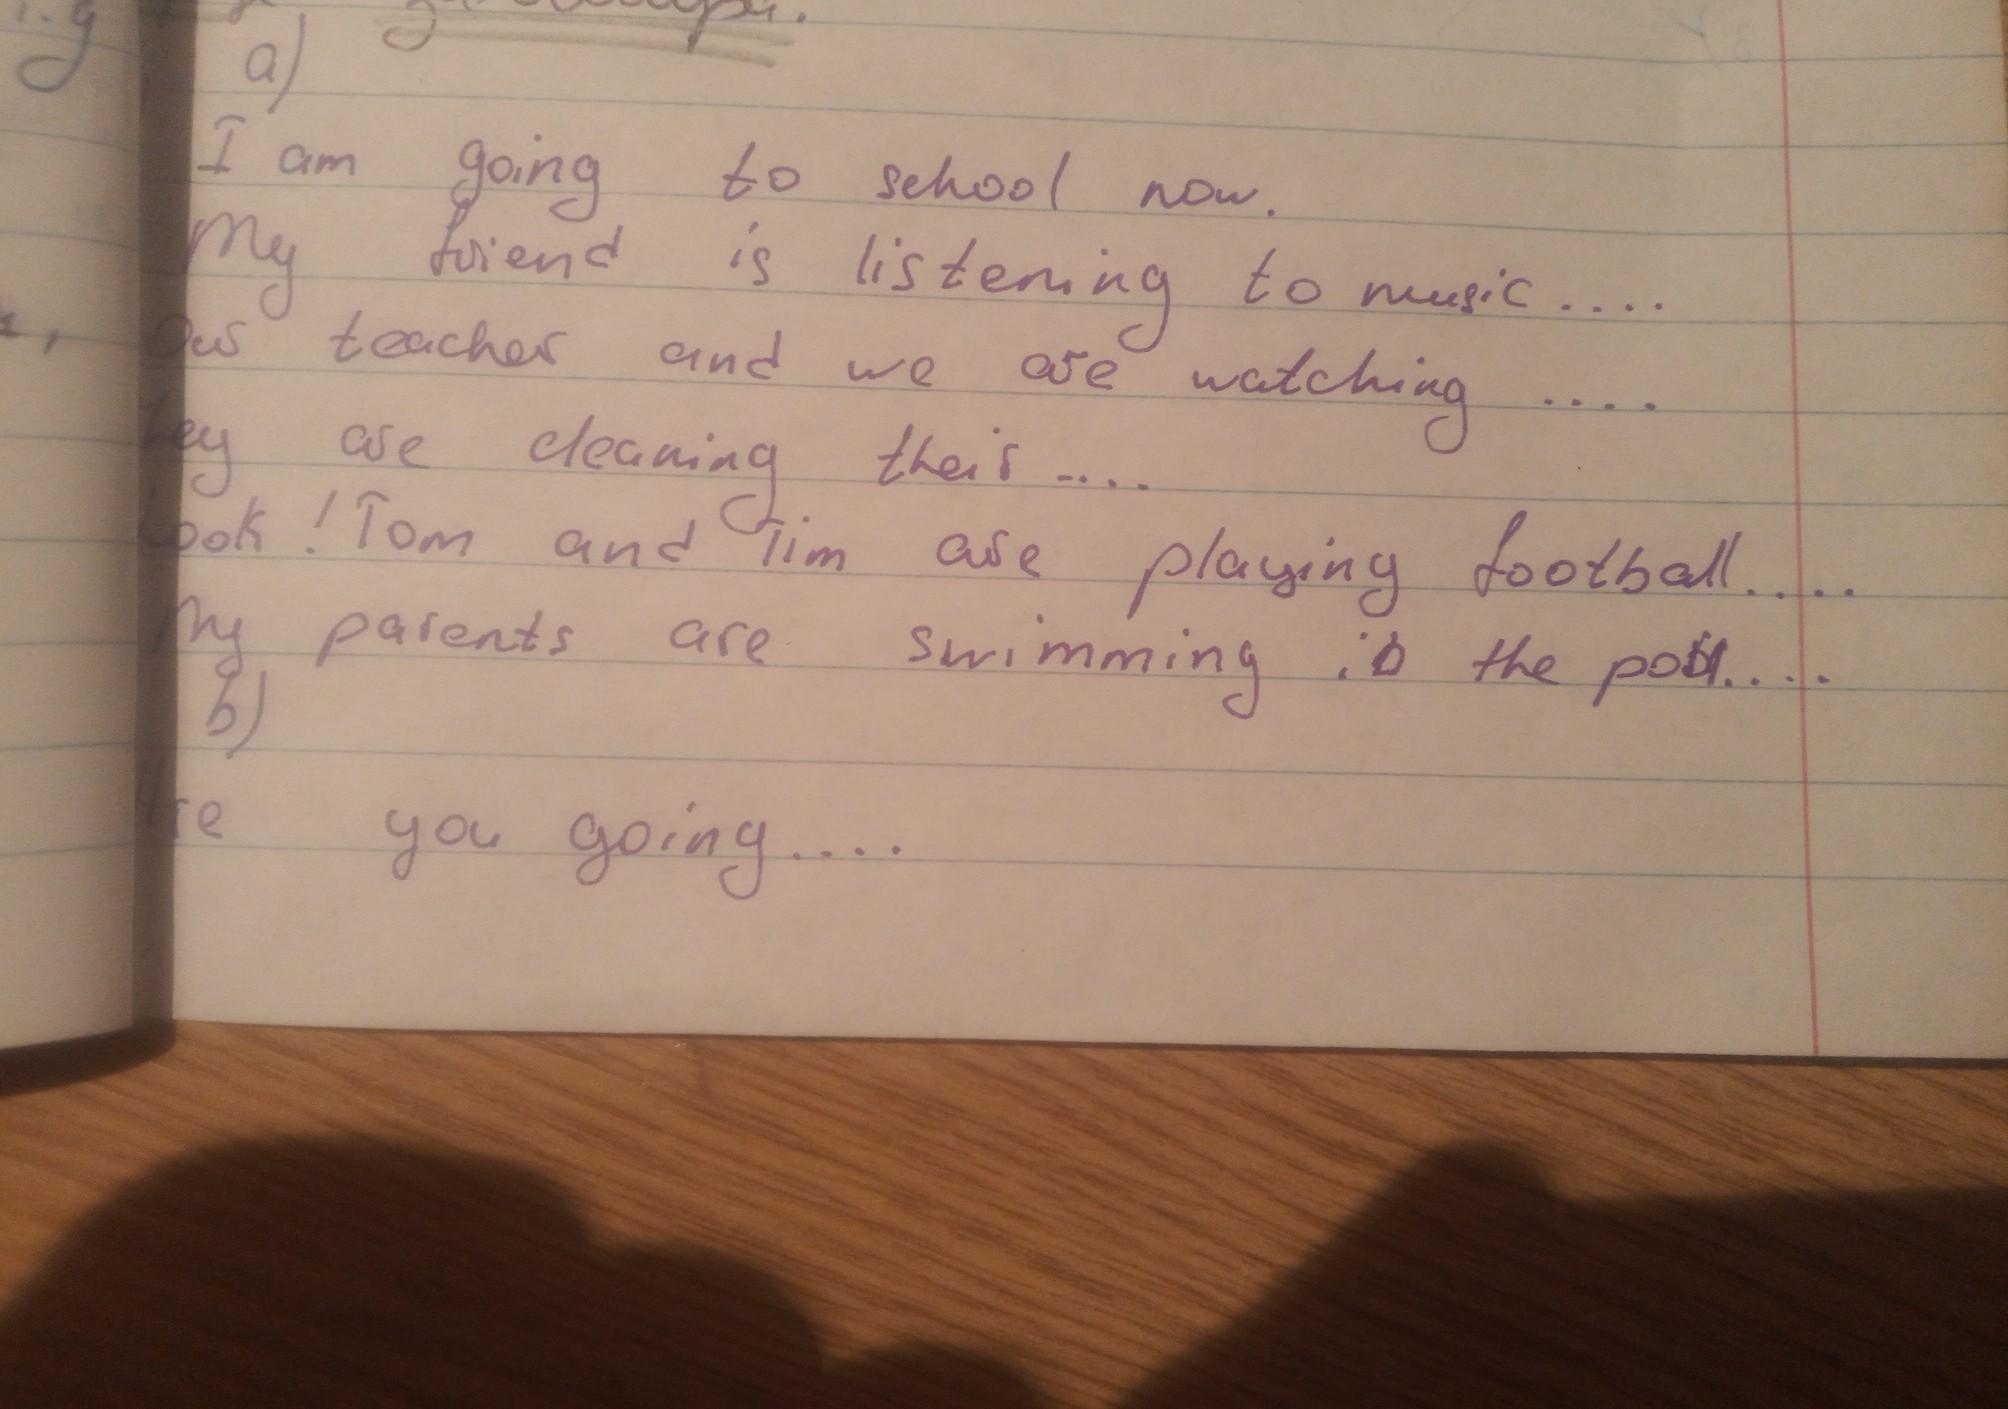 a)
I am going to school now.
My friend is listening to music....
Our teacher and we are watching ....
they are cleaning their ....
Look! Tom and Tim are playing football.....
My parents are swimming in the pool....
b)
Are you going....